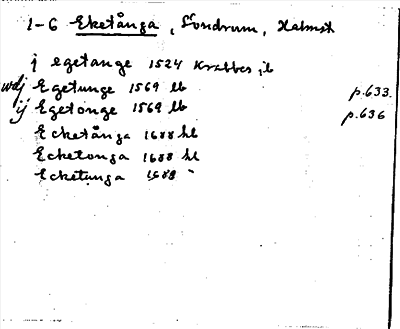 1-6 Eketånga, Söndrum, Halmst
j egetange 1524 Krabbes jb
wdj Egetunge 1569 lb p.633
ij Egetonge 1569 lb p.636
Ecketånga 1688 hl
Ecketonga 1688 hl
Ecketunga 1688 "